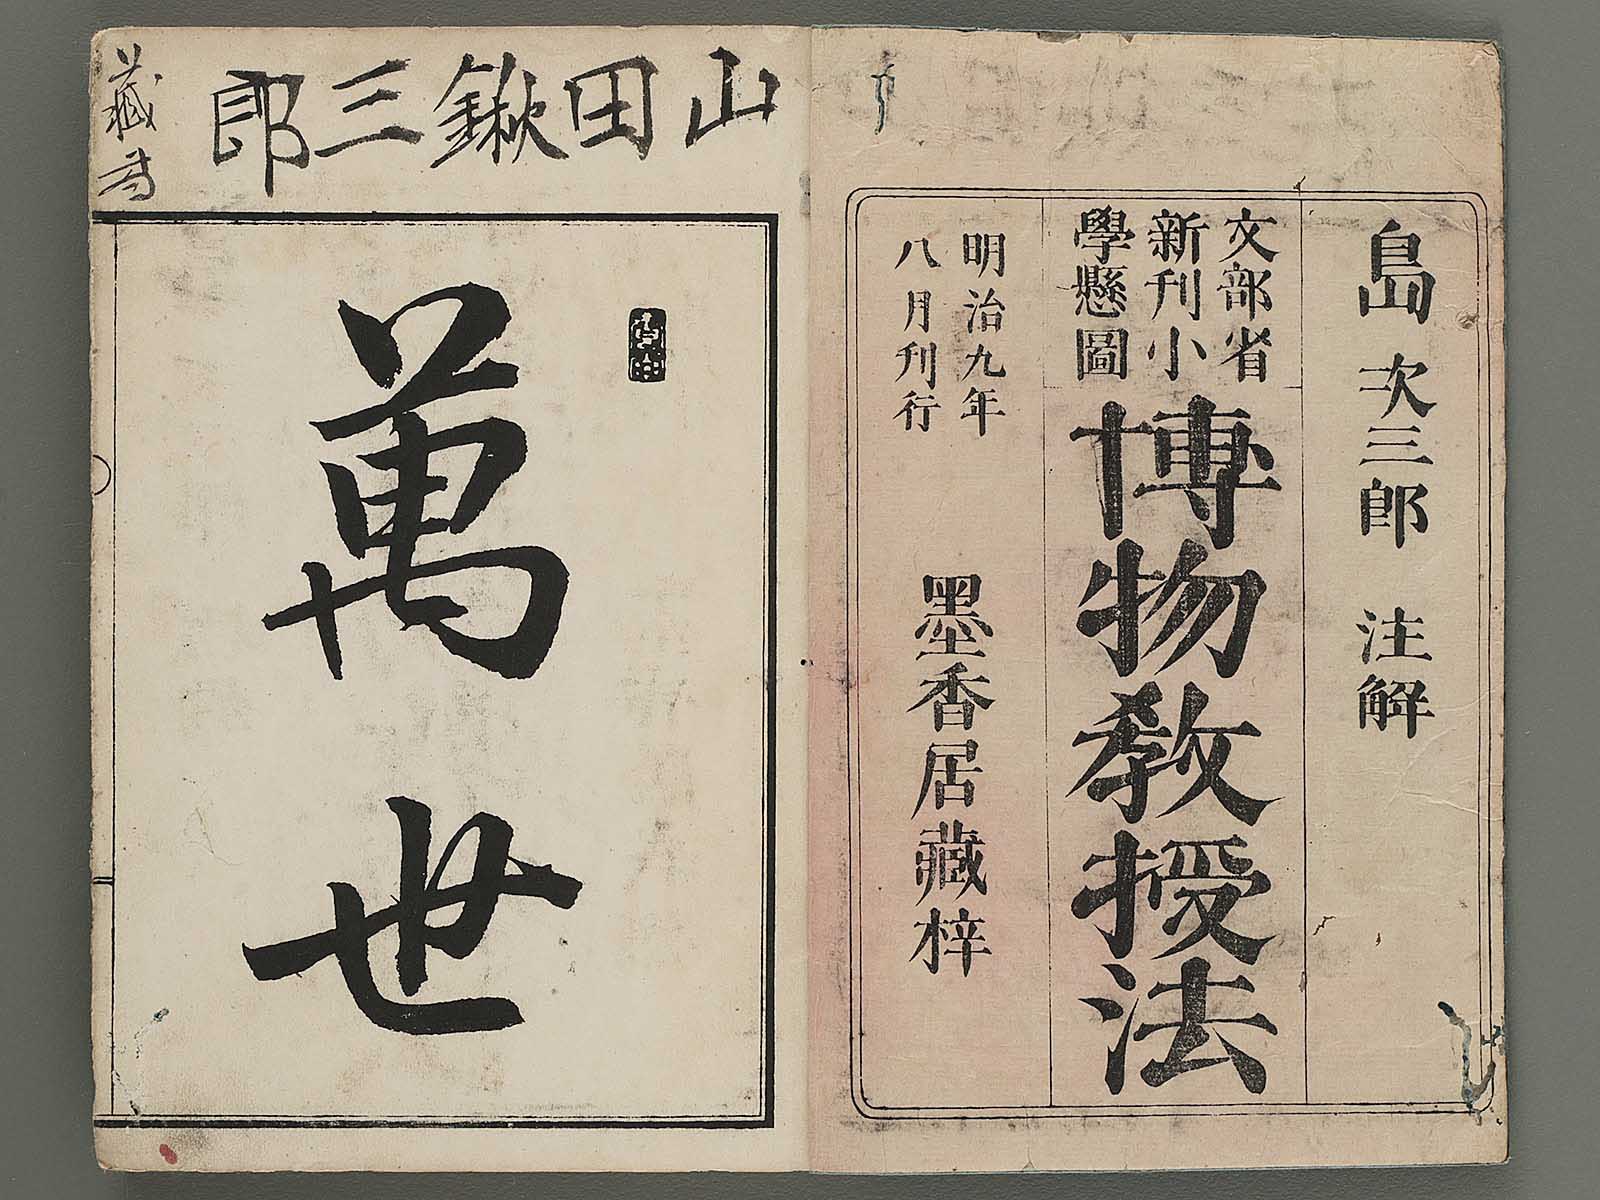 島次三郎 注解
文部省
新刊小
學懸圖
博物教授法
明治九年
八月刊行
墨香居藏梓
山田鍬三郎
藏書
萬世